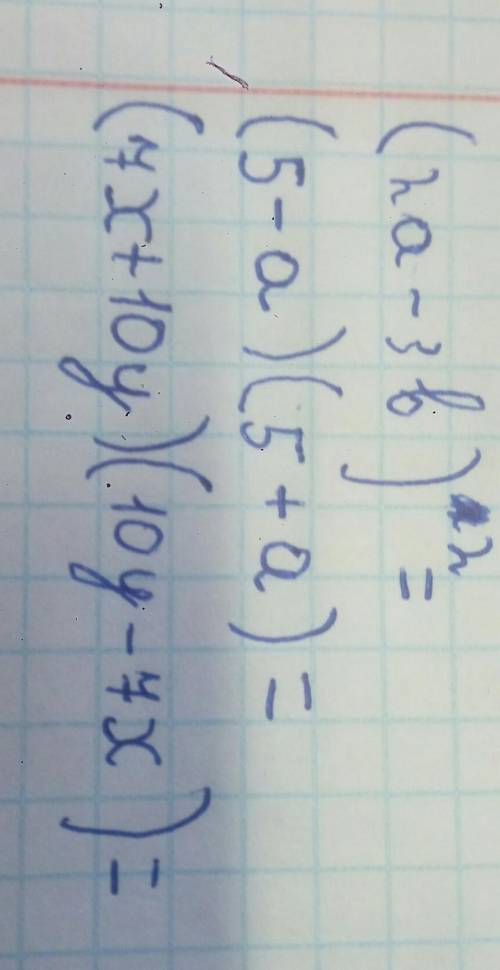 (2a-3b)²=
(5-a)(5+a)=
(7x+10y)(10y-7x)=